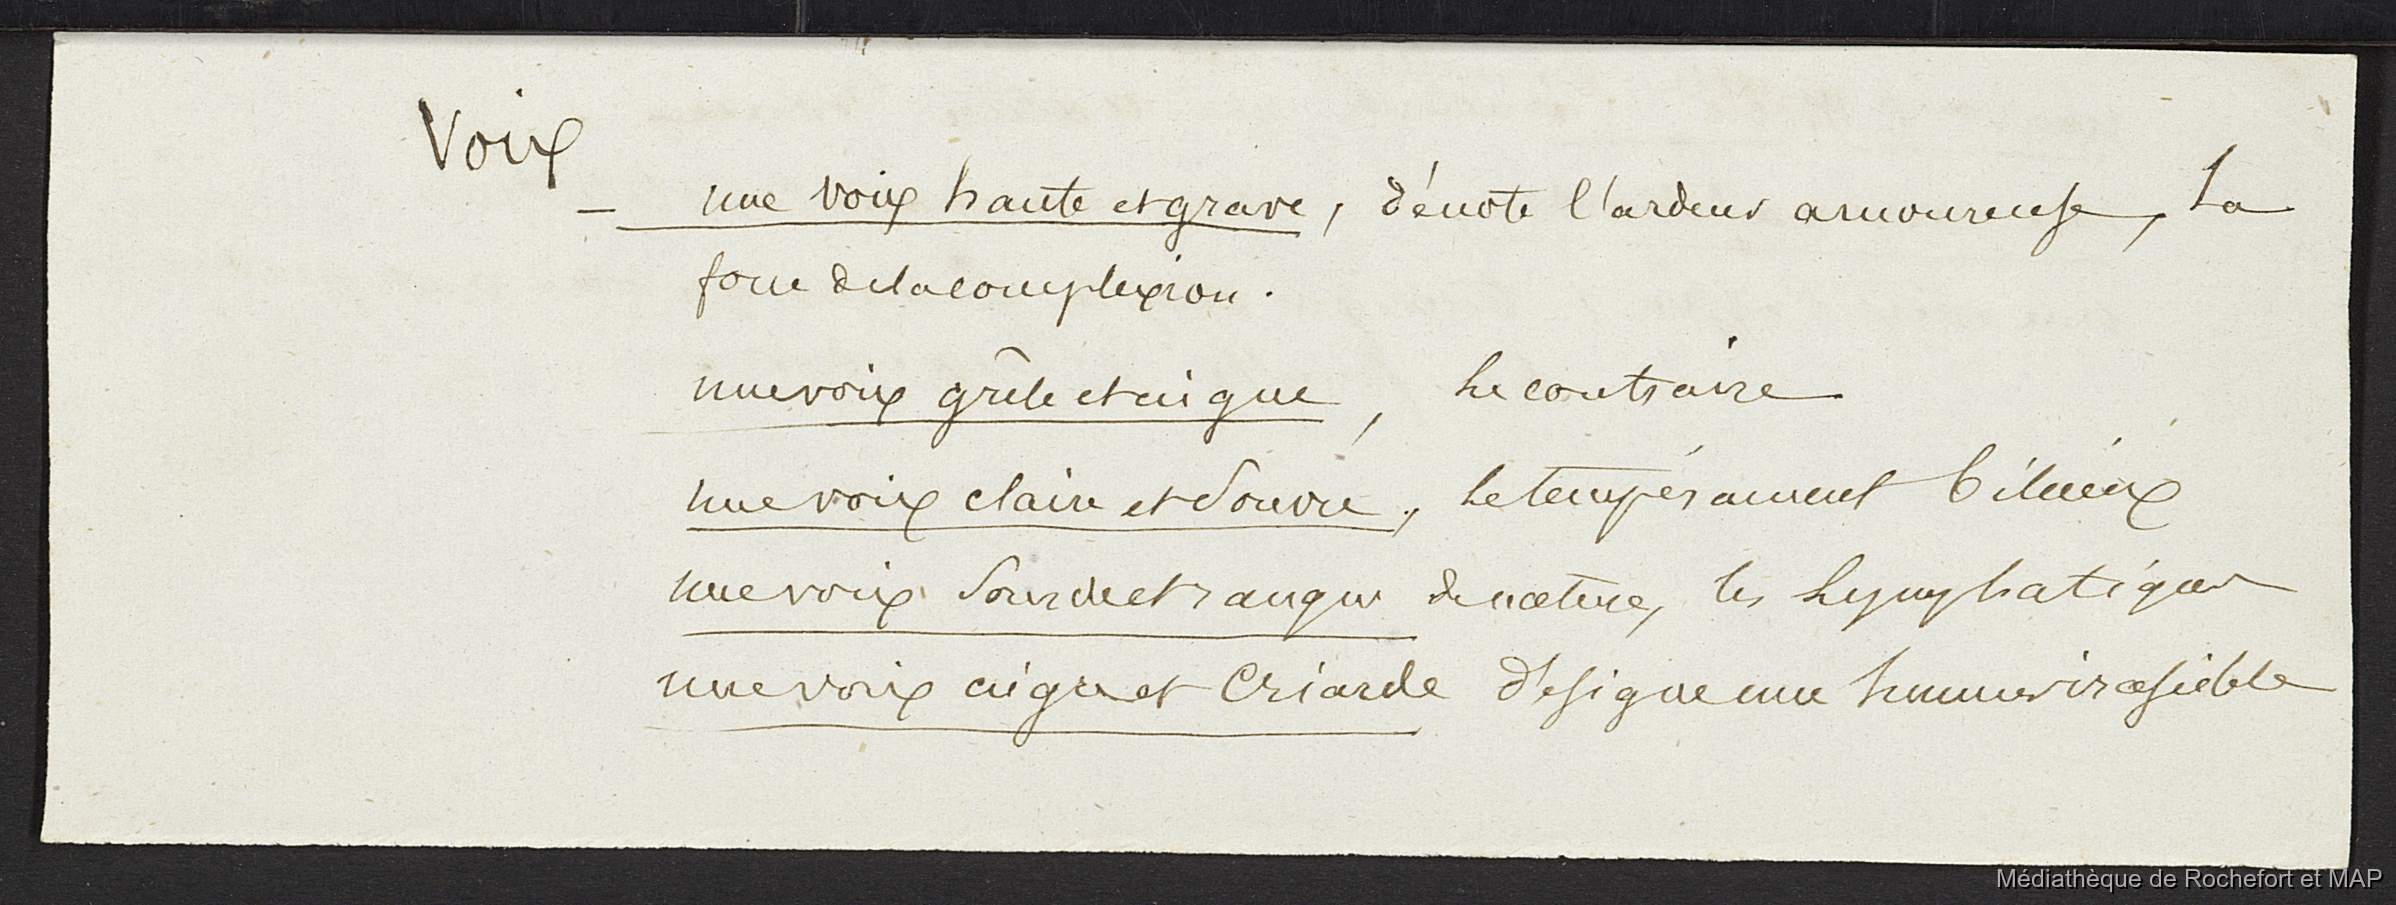 Voix
— une voix haute et grave, dénote l'ardeur amoureuse, La
force de la complexion.
une voix grêle et aigue, Le contraire
une voix claire et sonore, Le tempérament bilieux
une voix sourde et rauque denote, les Lymphatiques
une voix aigre et criarde désigne une humeur irascible
Médiathèque de Rochefort et MAP